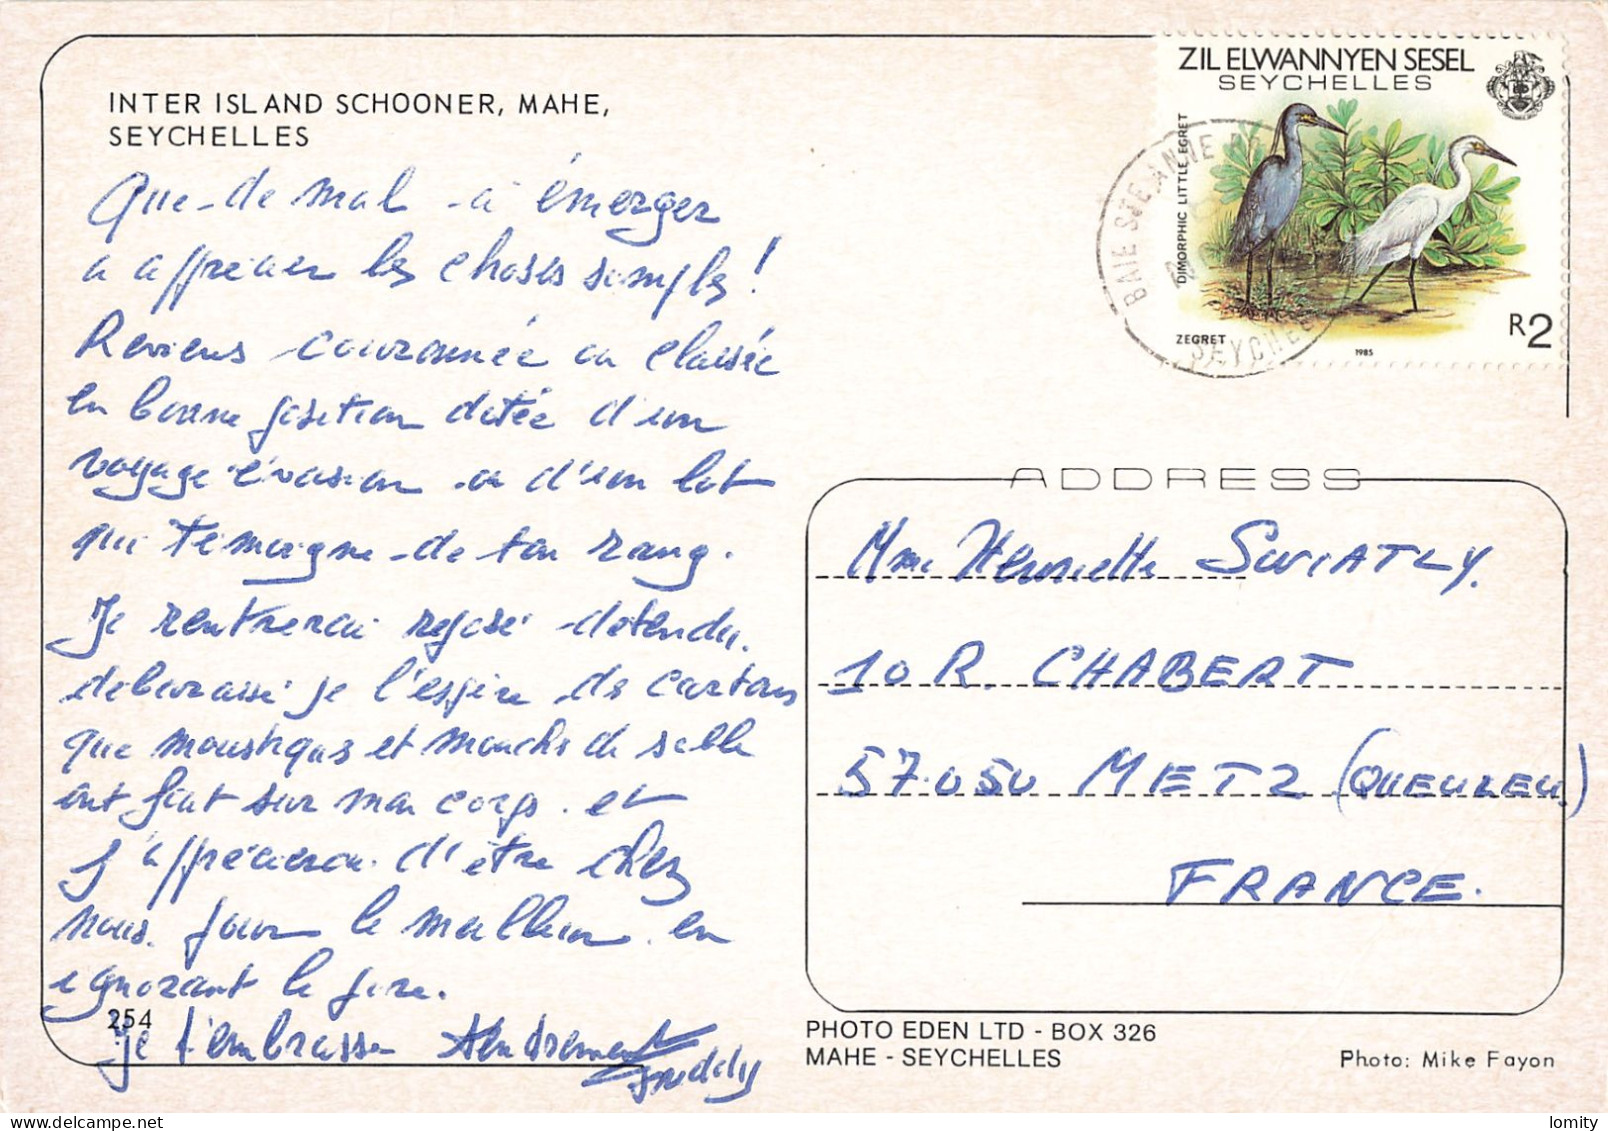 INTER ISLAND SCHOONER, MAHE,
SEYCHELLES
Que de mal à émerger
a apprecier les choses simples!
Reviens couronnée ou classée
en bonne position dotée d'un
voyage évasion ou d'un lot
qui temoigne de ton rang.
Je rentrerai reposé détendu.
debarassé je l'espère des cartons
que moustiques et mouches de sable
ont fait sur mon corps. et
j'apprécierai d'être chez
nous. pour le meilleur en
ignorant le pire.
254
Je t'embrasse tendrement
Freddy
ZIL ELWANNYEN SESEL
SEYCHELLES
DIMORPHIC LITTLE EGRET
ZEGRET
1985
R2
BAIE STE. ANNE
SEYCHELLES
ADDRESS
Mme Henriette SWIATLY.
10 R. CHABERT
57.050 METZ (QUEULEU.)
FRANCE.
PHOTO EDEN LTD - BOX 326
MAHE - SEYCHELLES
Photo: Mike Fayon
lomity